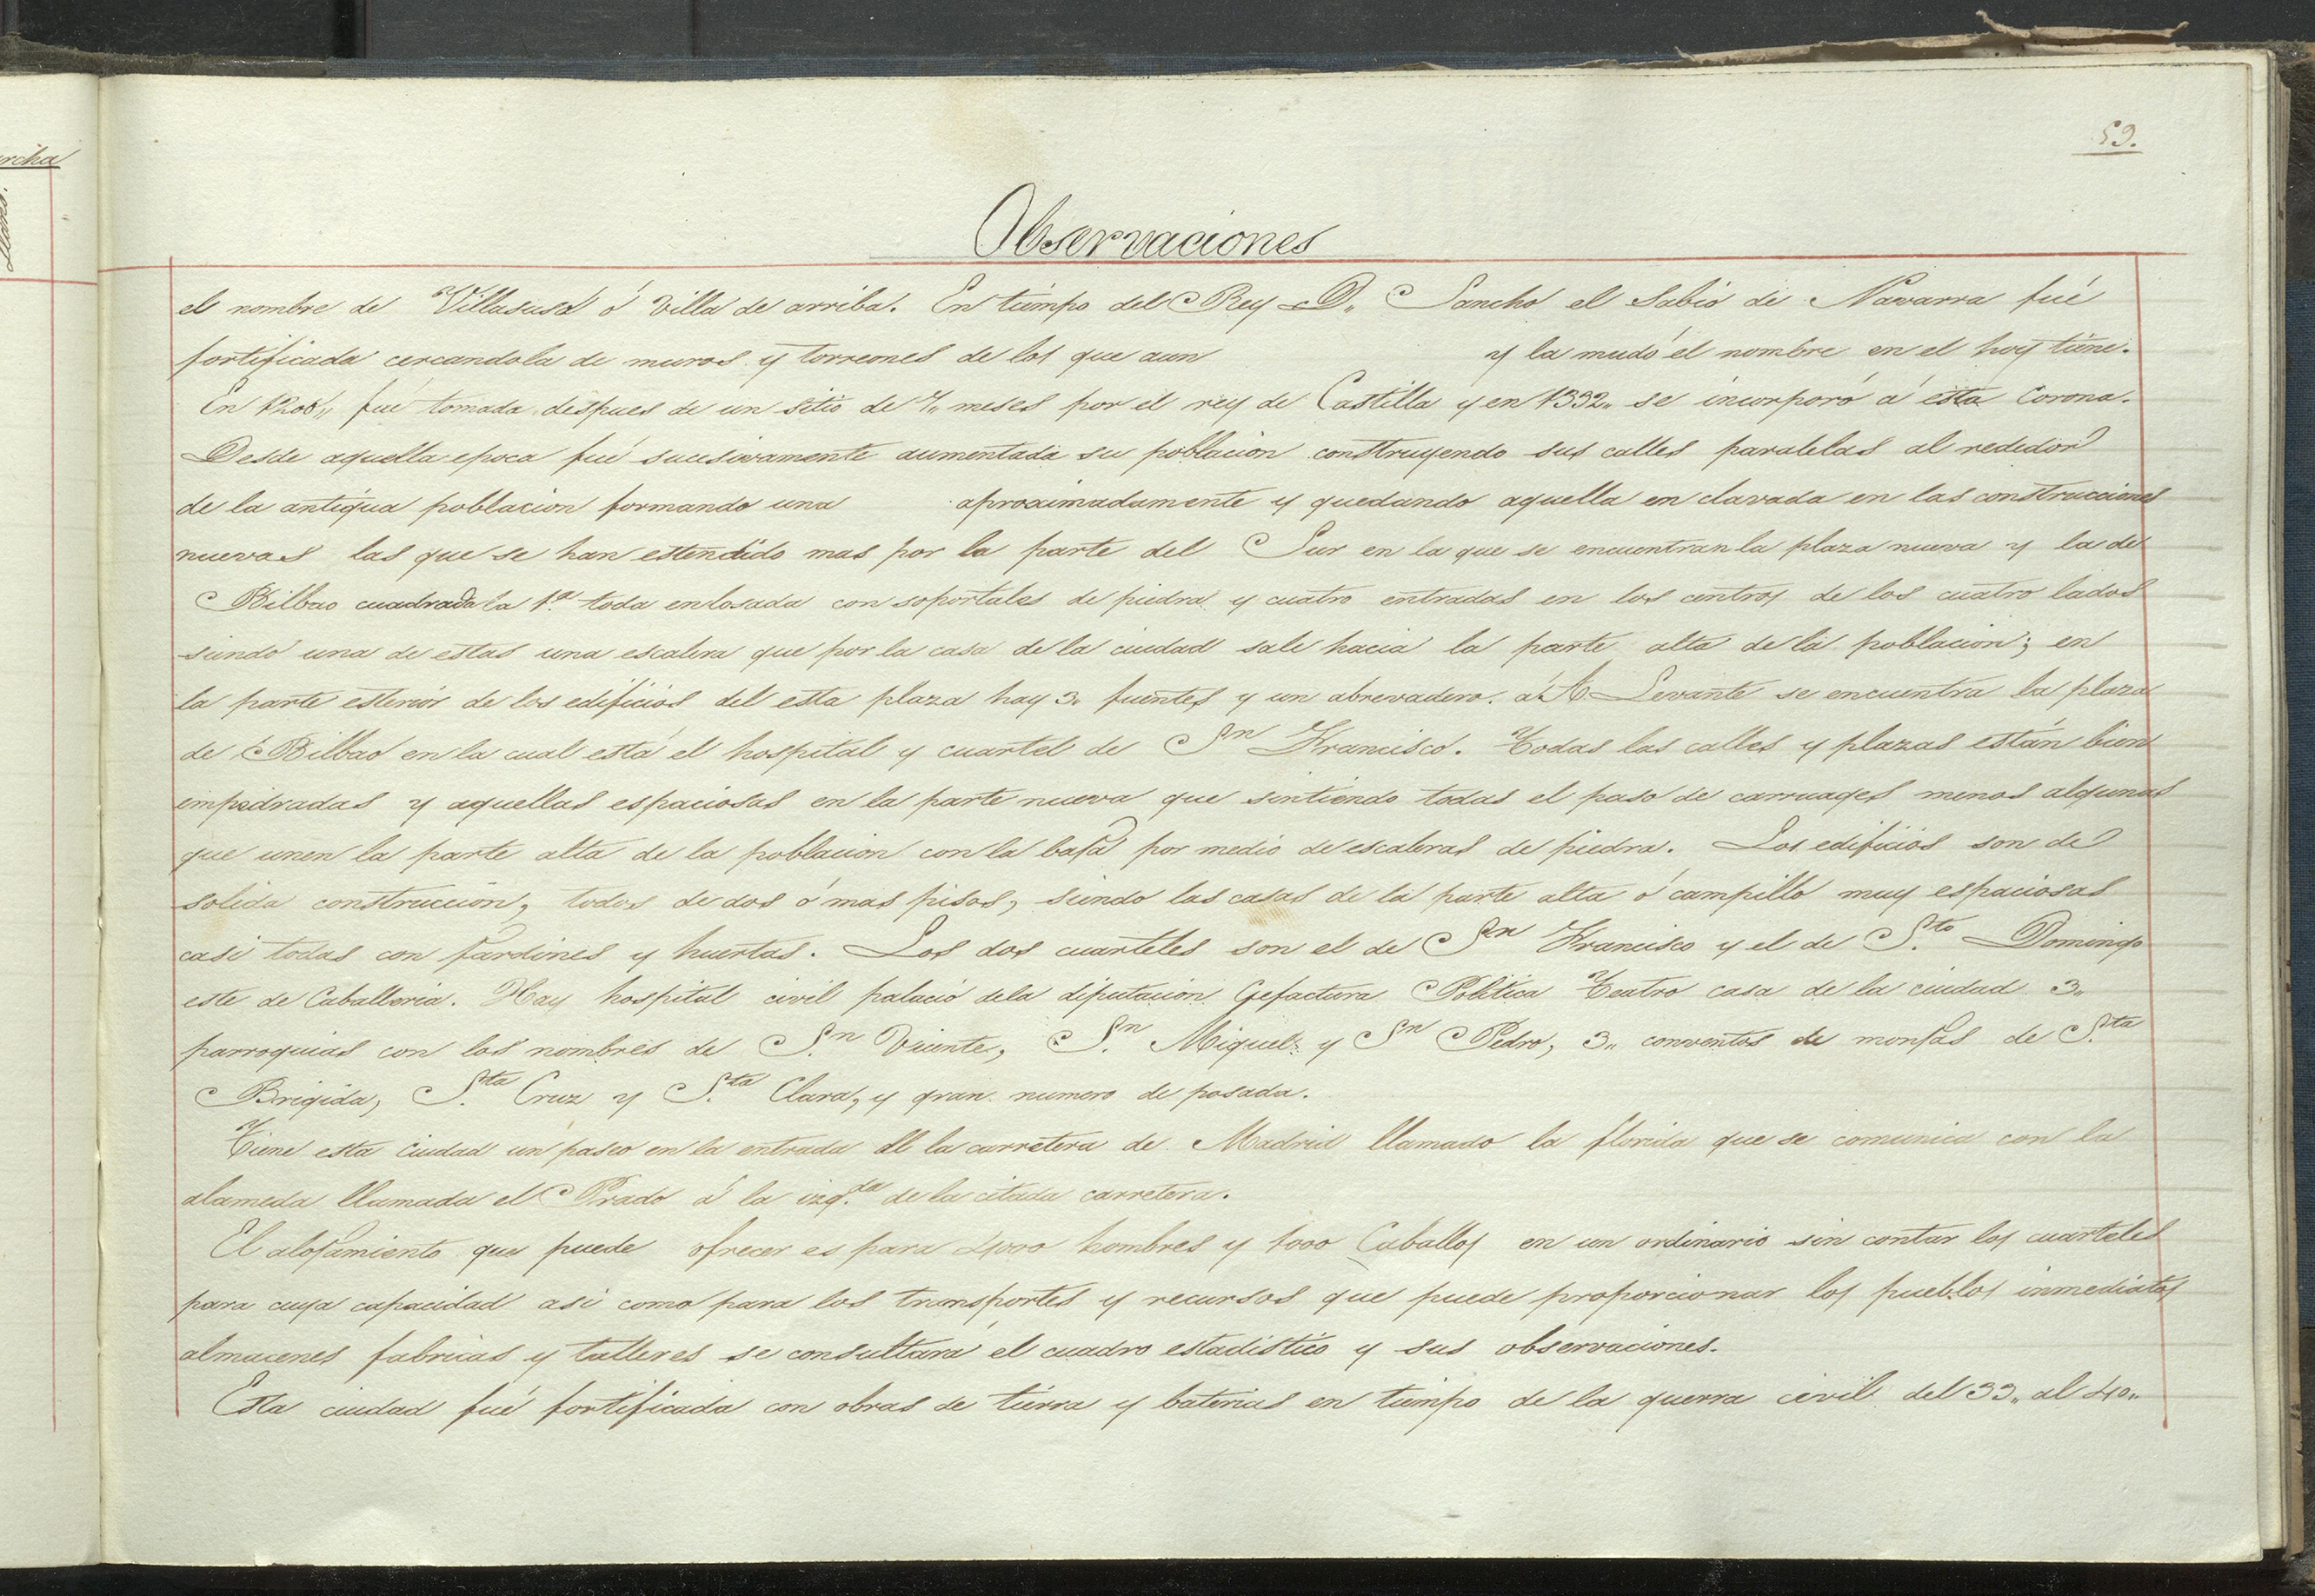 archa
59.
Observaciones
el nombre de Villasusa ó villa de arriba. En tiempo del Rey D., Sancho el Sabio de Navarra fué
fortificada cercandola de muros y torreones de los que aun y la mudó el nombre en el hoy tiene.
En fué tomada despues de un sitio de 7,, meses por el rey de Castilla y en 1332,, se incorporó á esta Corona.
Desde aquella epoca fué sucesivamente aumentada su poblacion construyendo sus calles paralelas al rededor
de la antigua poblacion formando una aproximadamente y quedando aquella en clavada en las construcciones
nuevas las que se han estendido mas por la parte del Sur en la que se encuentran la plaza nueva y la de
Bilbao cuadrada la 1.ª toda enlosada con soportales de piedra y cuatro entradas en los centros de los cuatro lados
siendo una de estas una escalera que por la casa de la ciudad sale hacia la parte alta de la poblacion; en
la parte esterior de los edificios del esta plaza hay 3,, fuentes y un abrevadero. á Levante se encuentra la plaza
de Bilbao en la cual está el hospital y cuartel de Sn Francisco. Todas las calles y plazas están bien
empedradas y aquellas espaciosas en la parte nueva que sintiendo todas el paso de carruages menos algunas
que unen la parte alta de la poblacion con la baja por medio de escaleras de piedra. Los edificios son de
solida construccion, todos de dos ó mas pisos, siendo las casas de la parte alta ó campillo muy espaciosas
casi todas con jardines y huertas. Los dos cuarteles son el de Sn Francisco y el de S.to Domingo
este de Caballeria. Hay hospital civil palacio dela diputacion Gefactura Politica Teatro casa de la ciudad 3,,
parroquias con los nombres de S.n Vicente, S.n Miguel y Sn Pedro, 3,, conventos de monjas de S.ta
Brigida, S.ta Cruz y S.ta Clara, y gran numero de posada.
Tiene esta ciudad un paseo en la entrada de la carretera de Madrid llamado la florida que se comunica con la
alameda llamada el Prado á la izq.da de la citada carretera.
El alojamiento que puede ofrecer es para 4000 hombres y 1000 Caballos en un ordinario sin contar los cuarteles
para cuya capacidad asi como para los transportes y recursos que puede proporcionar los pueblos inmediatos
almacenes fabricas y talleres se consultará el cuadro estadistico y sus observaciones.
Esta ciudad fué fortificada con obras de tierra y baterias en tiempo de la guerra civil del 33,, al 40,,